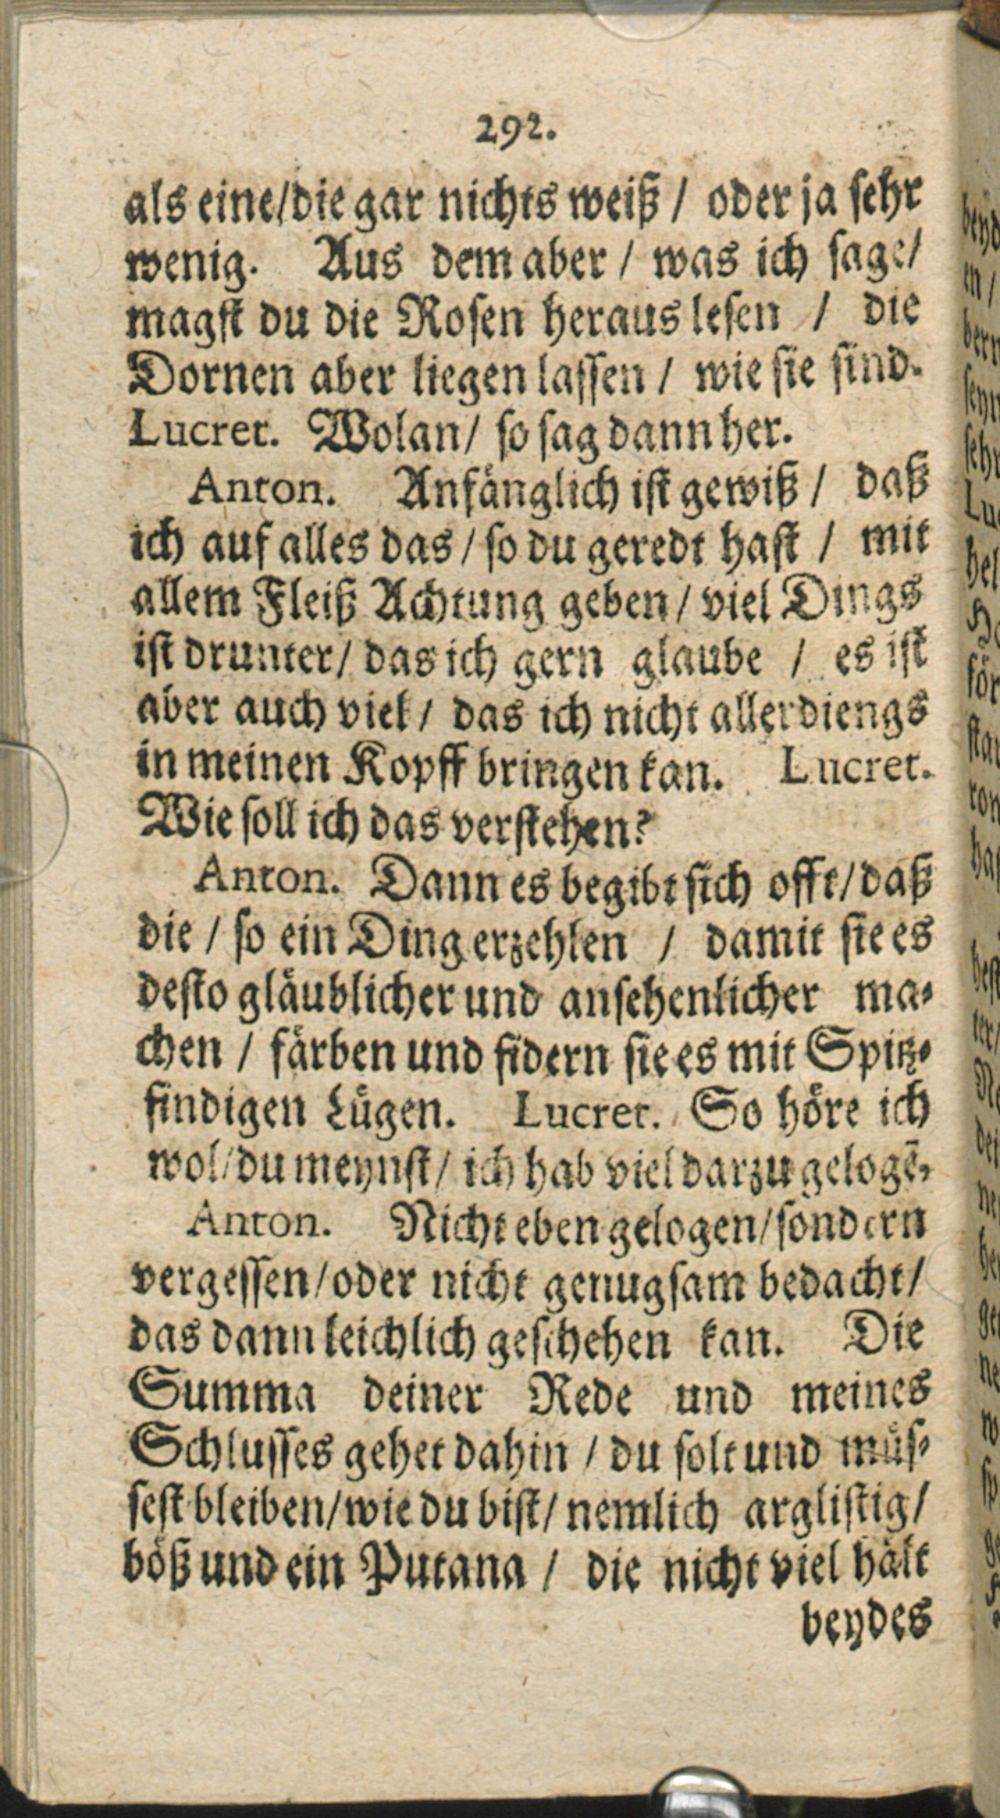 292.
als eine/die gar nichts weiß / oder ja sehr
wenig. Aus dem aber / was ich sage/
magst du die Rosen heraus lesen / die
Dornen aber liegen lassen / wie sie sind.
Lucret. Wolan/ so sag dann her.
Anton. Anfänglich ist gewiß / daß
ich auf alles das / so du geredt hast / mit
allem Fleiß Achtung geben / viel Dings
ist drunter/ das ich gern glaube / es ist
aber auch viel / das ich nicht allerdiengs
in meinen Kopff bringen kan. Lucret.
Wie soll ich das verstehen?
Anton. Dann es begibt sich offt/daß
die / so ein Ding erzehlen / damit sie es
desto gläublicher und ansehenlicher ma-
chen / färben und fidern sie es mit Spitz-
findigen Lügen. Lucret. So höre ich
wol/du meynst/ ich hab viel darzu gelogē,
Anton. Nicht eben gelogen/sondern
vergessen/oder nicht genugsam bedacht/
das dann leichlich geschehen kan. Die
Summa deiner Rede und meines
Schlusses gehet dahin / du solt und müs-
sest bleiben/wie du bist/ nemlich arglistig/
böß und ein Putana / die nicht viel hält
beydes